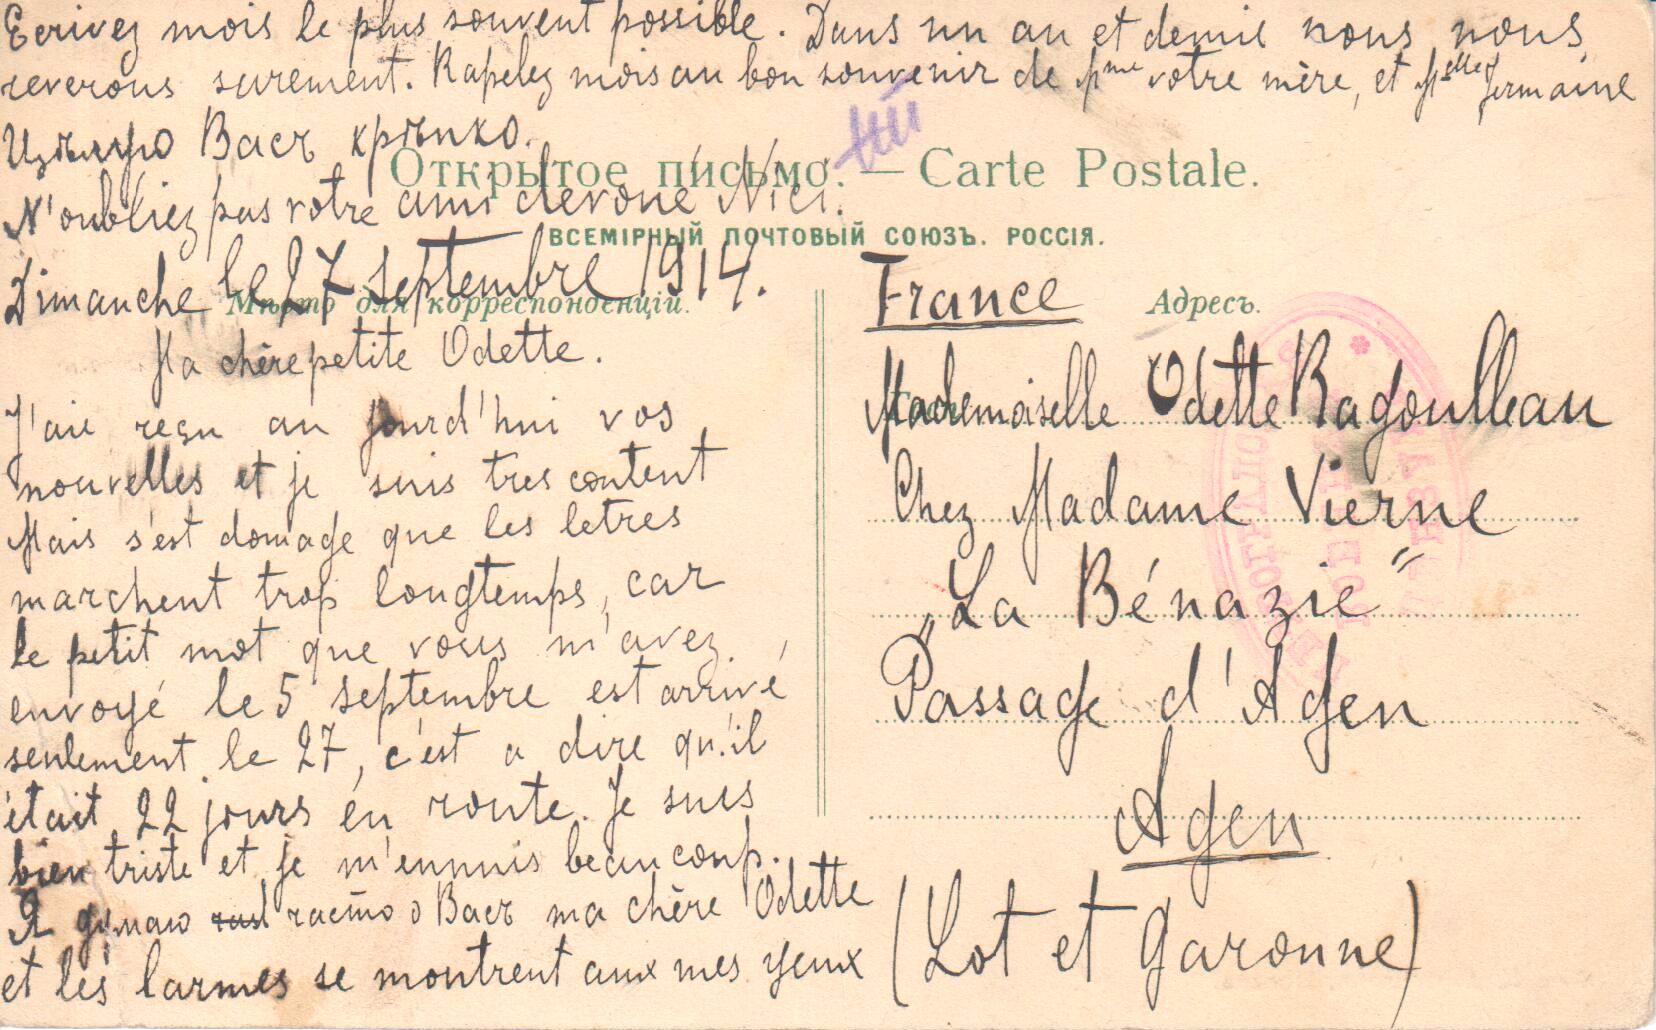 Ecrivez mois le plus souvent possible. Dans un an et demie nous nous
reverons surement. Rapelez mois au bon souvenir de Mme votre mère, et Melle Germaine
Цѣлую Васъ крѣпко.
Открытое письмо. — Carte Postale.
N'oubliez pas votre ami devoué Nici.
ВСЕМІРНЫЙ ПОЧТОВЫЙ СОЮЗЪ. РОССІЯ.
Dimanche le 27 Septembre 1914.
Мѣсто для корреспонденціи.
Ma chère petite Odette.
J'aie reçu au jourd'hui vos
nouvelles et je suis tres content
Mais s'est domage que les letres
marchent trop longtemps, car
le petit mot que vous m'avez
envoyé le 5 septembre est arrivé
seulement le 27, c'est a dire qu'il
était 22 jours en route. Je suis
bien triste et je m'ennuis beaucoup.
Я думаю часто о Васъ ma chère Odette
et les larmes se montrent aux mes yeux
Адресъ.
France
Mademoiselle Odette Ragoulleau
Chez Madame Vierne
„La Bénazie"
Passage d'Agen
Agen
(Lot et Garonne)